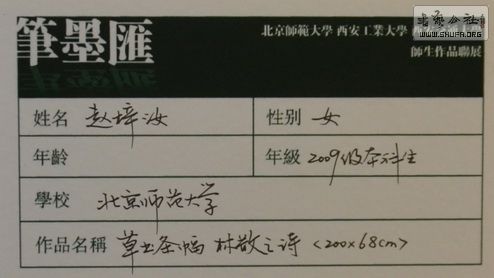 書法公社
WWW.SHUFA.ORG
筆墨匯
北京師範大學 西安工業大學
師生作品聯展
姓名 赵梓汝 性别 女
年齡 年級 2009级本科生
學校 北京师范大学
作品名稱 草书条幅 林散之诗 <200×68cm>